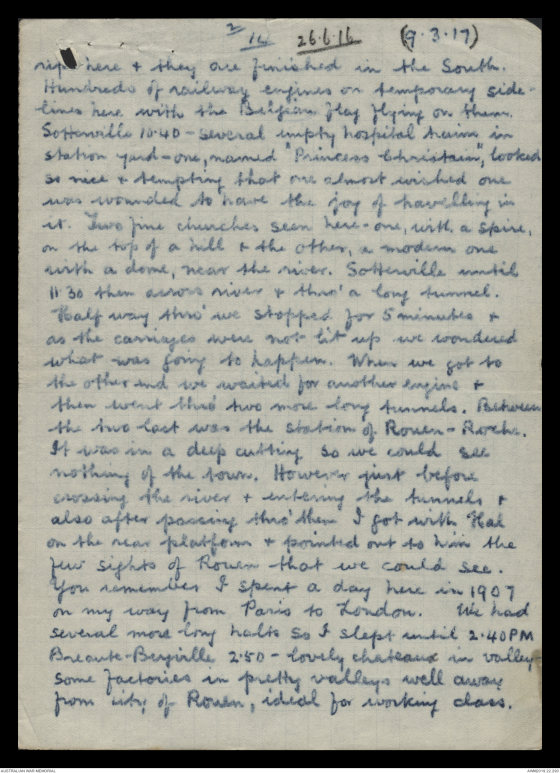 2
16 26.6.16 (9.3.17)
ripe here & they are finished in the South.
Hundreds of railway engines on temporary side-
lines here with the Belgian flag flying on them.
Sotterville 10.40 - several empty hospital trains in
station yard - one, named "Princess Christain", looked
so nice & tempting that one almost wished one
was wounded to have the joy of travelling in
it. Two fine churches seen here - one, with a spire,
on the top of a hill & the other, a modern one
with a dome, near the river. Sotterville until
11.30 then across river & thro' a long tunnel.
Half way thro' we stopped for 5 minutes &
as the carriages were not lit up we wondered
what was going to happen. When we got to
the other end we waited for another engine &
then went thro' two more long tunnels. Between
the two last was the station of Rouen - Roche.
It was in a deep cutting so we could see
nothing of the town. However just before
crossing the river & entering the tunnels &
also after passing thro' them I got with Hal
on the rear platform & pointed out to him the
few sights of Rouen that we could see.
You remember I spent a day here in 1907
on my way from Paris to London. We had
several more long halts so I slept until 2.40 PM
Breaute-Beyville 2.50 - lovely chateaux in valley -
some factories in pretty valleys well away
from city of Rouen, ideal for working class.
AUSTRALIAN WAR MEMORIAL